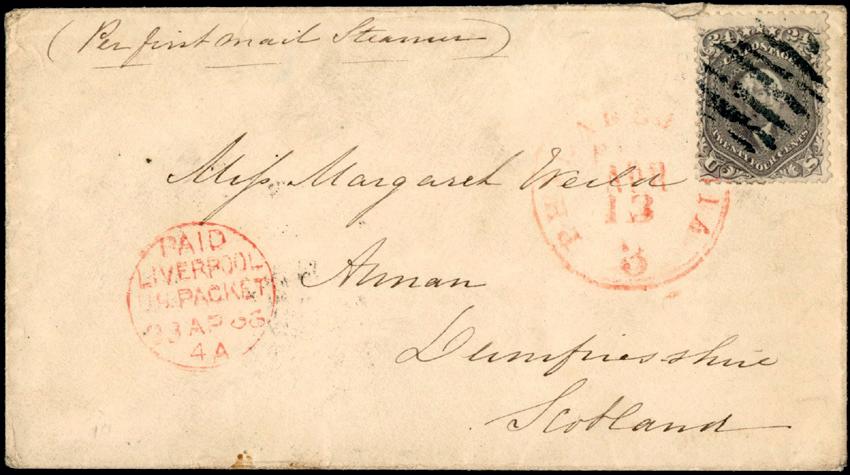 (Per first mail Steamer)
24 U.S. POSTAGE 24
TWENTY FOUR CENTS
U S
PHILADELPHIA
APR
13
3
Miss Margaret Weild
Annan
Dumfriesshire
Scotland
PAID
LIVERPOOL
U.S. PACKET
23 AP 63
4A